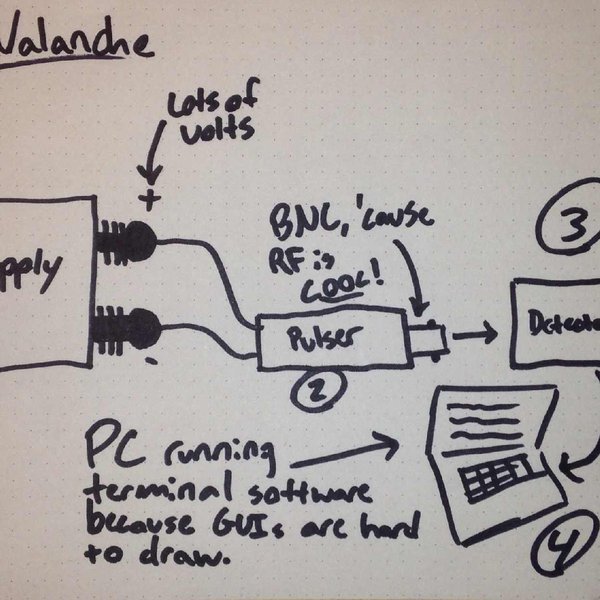 Valanche
Lots of
volts
+
BNC, 'cause
RF is
COOL!
3
pply
-
Pulser
Detecto
2
PC running
terminal software
because GUIs are hard
to draw.
4